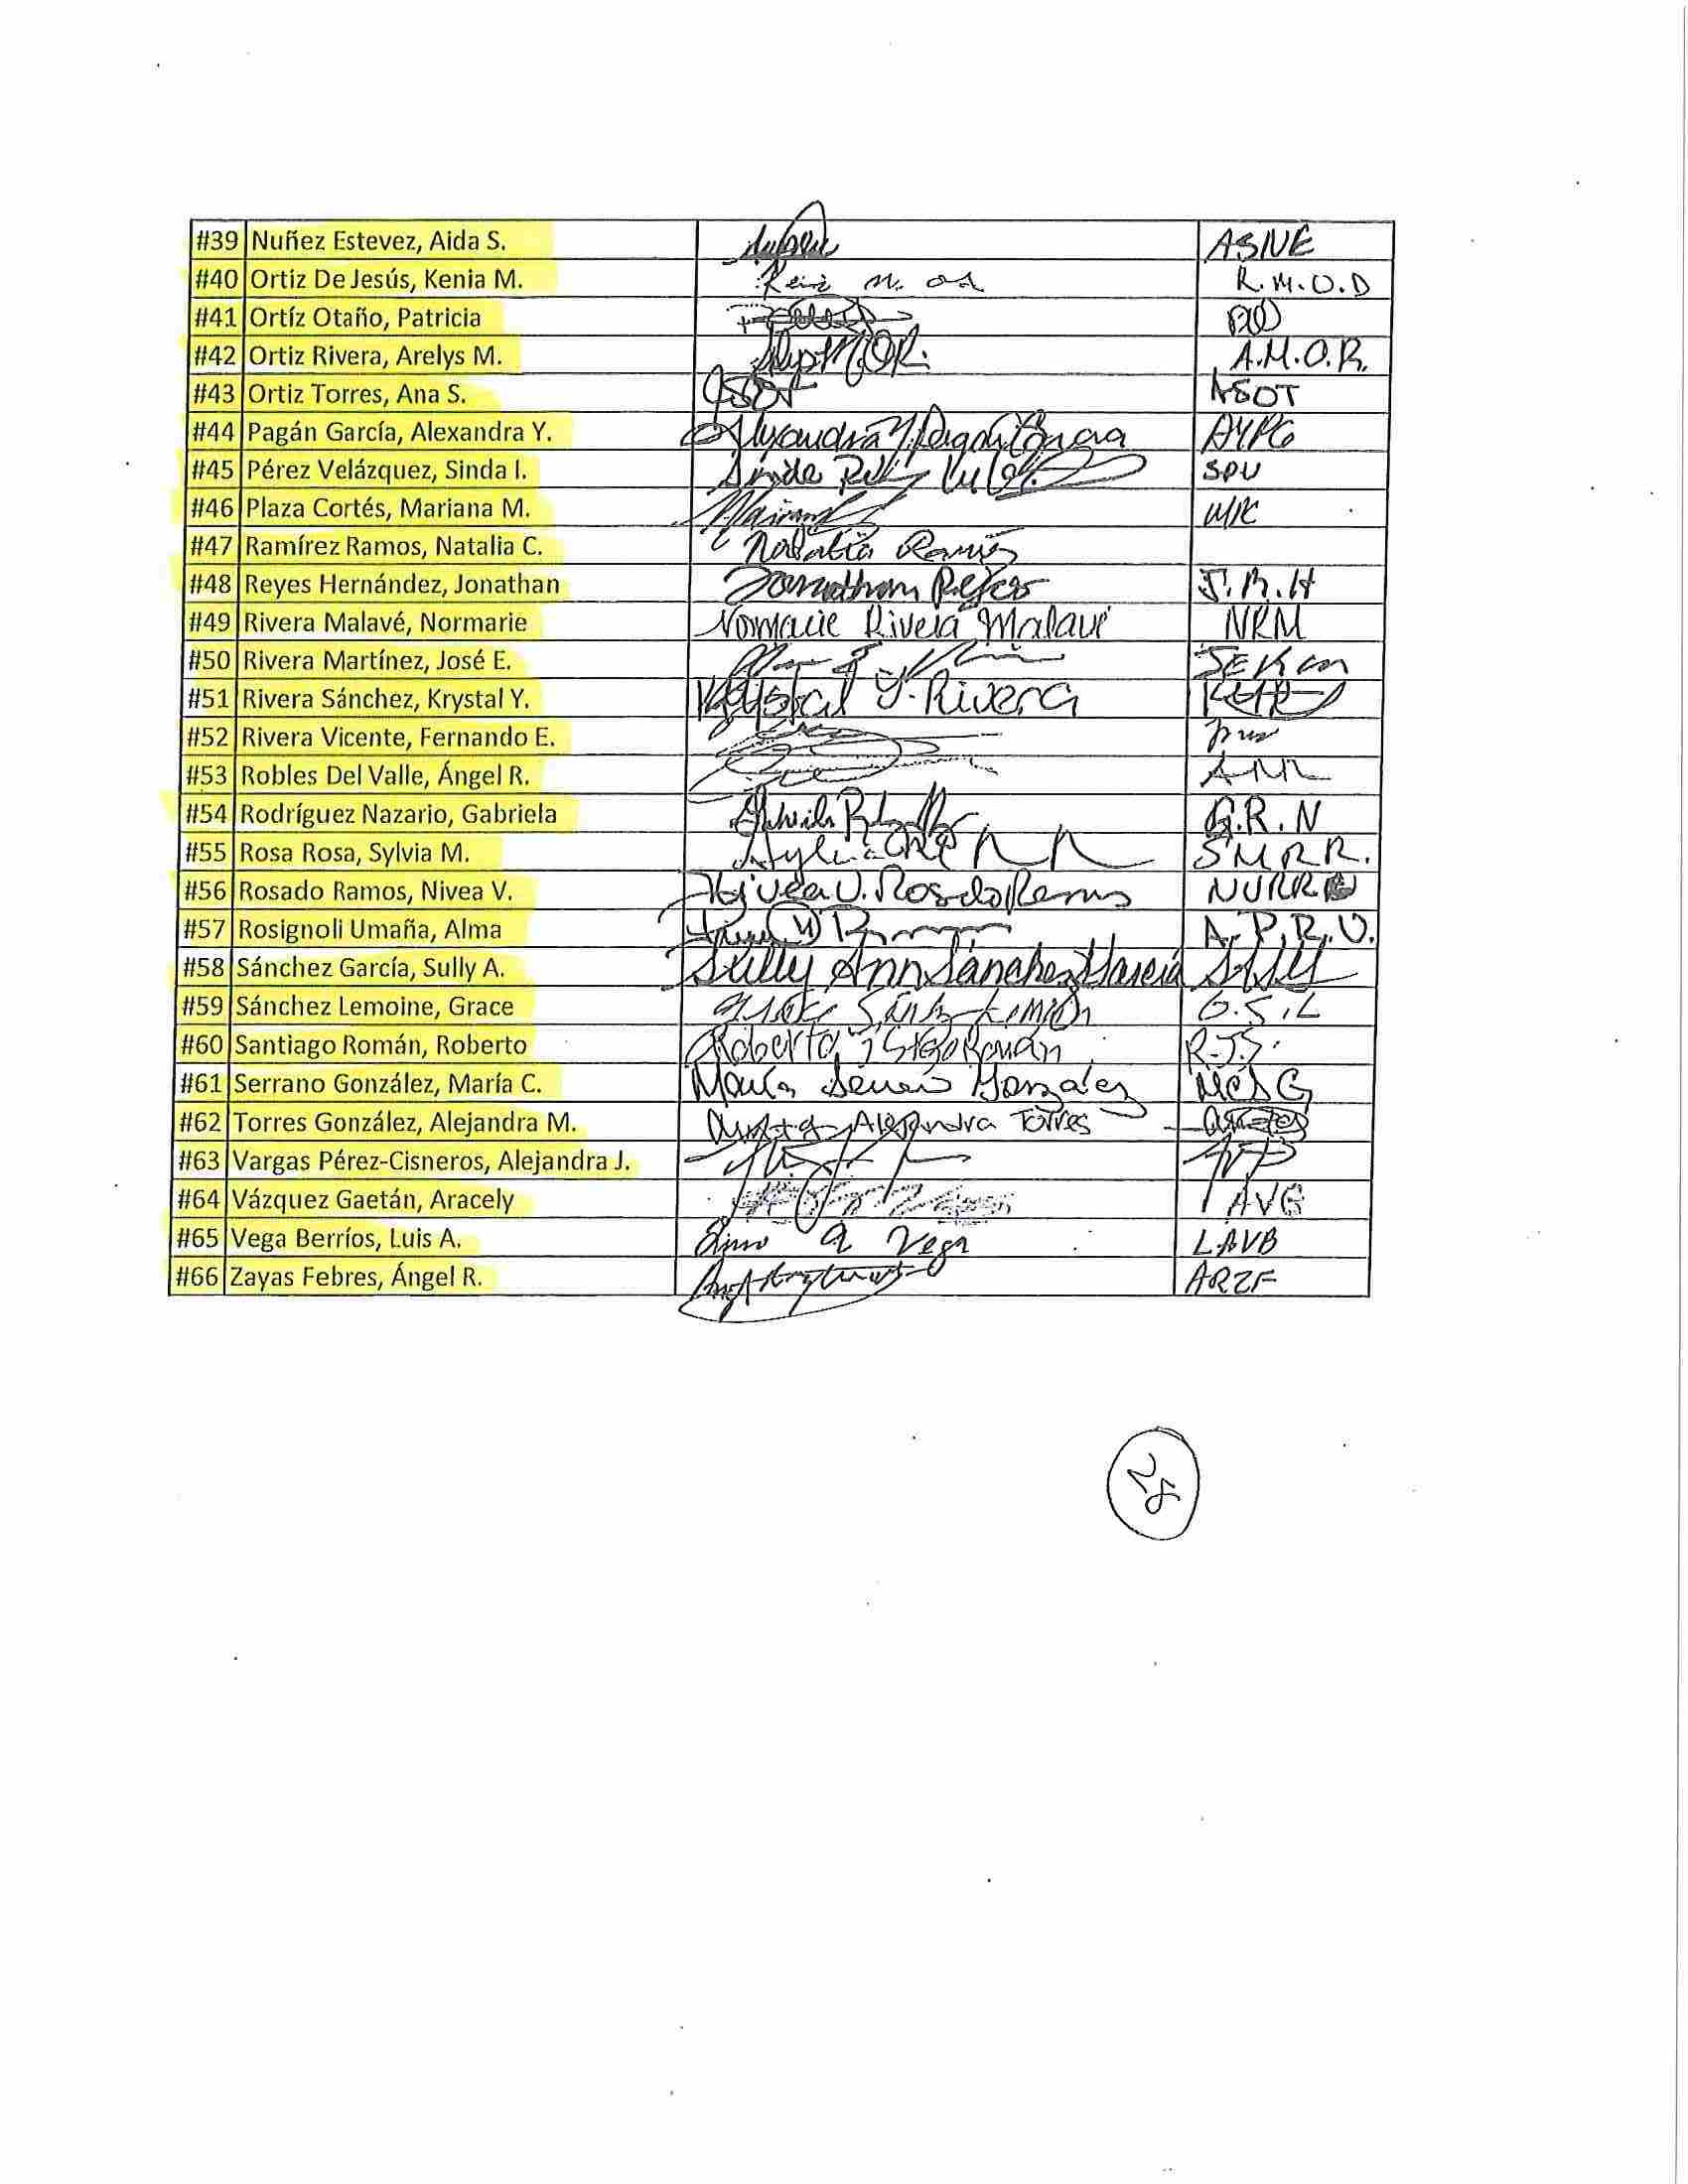 #39 Nuñez Estevez, Aida S. ASNE
#40 Ortiz De Jesús, Kenia M. K.M.O.D
#41 Ortíz Otaño, Patricia
#42 Ortiz Rivera, Arelys M. A.M.O.R.
#43 Ortiz Torres, Ana S. ASOT
#44 Pagán García, Alexandra Y. Alexandra Y. Pagán García AYPG
#45 Pérez Velázquez, Sinda I. SPV
#46 Plaza Cortés, Mariana M.
#47 Ramírez Ramos, Natalia C. Natalia
#48 Reyes Hernández, Jonathan Jonathan Reyes J.R.H
#49 Rivera Malavé, Normarie Normarie Rivera Malavé NRM
#50 Rivera Martínez, José E.
#51 Rivera Sánchez, Krystal Y. Krystal Y. Rivera
#52 Rivera Vicente, Fernando E.
#53 Robles Del Valle, Ángel R.
#54 Rodríguez Nazario, Gabriela G.R.N
#55 Rosa Rosa, Sylvia M. S M R R.
#56 Rosado Ramos, Nivea V. Nivea V. Rosado Ramos NVRR
#57 Rosignoli Umaña, Alma A.P.R.U.
#58 Sánchez García, Sully A. Sully Ann Sánchez García
#59 Sánchez Lemoine, Grace G.S.L
#60 Santiago Román, Roberto Roberto Román
#61 Serrano González, María C. María Serrano González MCSG
#62 Torres González, Alejandra M. Alejandra Torres
#63 Vargas Pérez-Cisneros, Alejandra J.
#64 Vázquez Gaetán, Aracely AVG
#65 Vega Berríos, Luis A. Luis A Vega LAVB
#66 Zayas Febres, Ángel R. ARZF
28